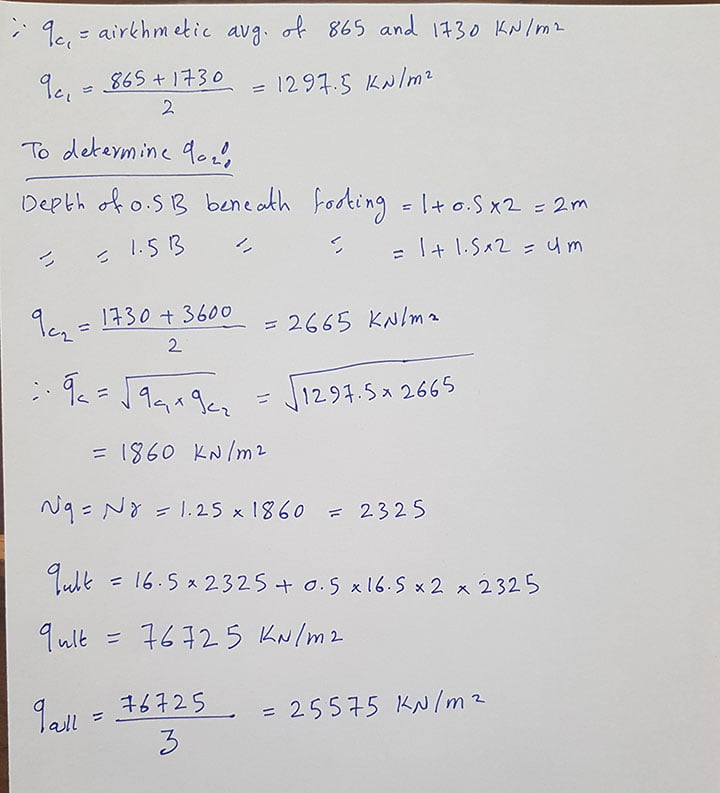 ∴ qc₁ = airthmetic avg. of 865 and 1730 KN/m²
qc₁ = (865 + 1730)/2 = 1297.5 KN/m²
To determine qc₂:
Depth of 0.5 B beneath footing = 1 + 0.5 × 2 = 2m
〃 〃 1.5 B 〃 〃 = 1 + 1.5 × 2 = 4m
qc₂ = (1730 + 3600)/2 = 2665 KN/m²
∴ q̄c = √(qc₁ × qc₂) = √(1297.5 × 2665)
= 1860 KN/m²
Nq = Nγ = 1.25 × 1860 = 2325
qult = 16.5 × 2325 + 0.5 × 16.5 × 2 × 2325
qult = 76725 KN/m²
qall = 76725/3 = 25575 KN/m²